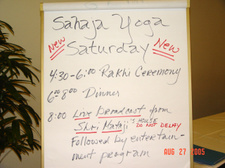 Sahaja Yoga
New Saturday New
4:30-6:00 Rakhi Ceremony
6:00-8:00 Dinner
8:00 Live Broadcast from
Shri Mataji's HOUSE
20 MNT DELAY
Followed by entertain-
ment program
AUG 27 2005